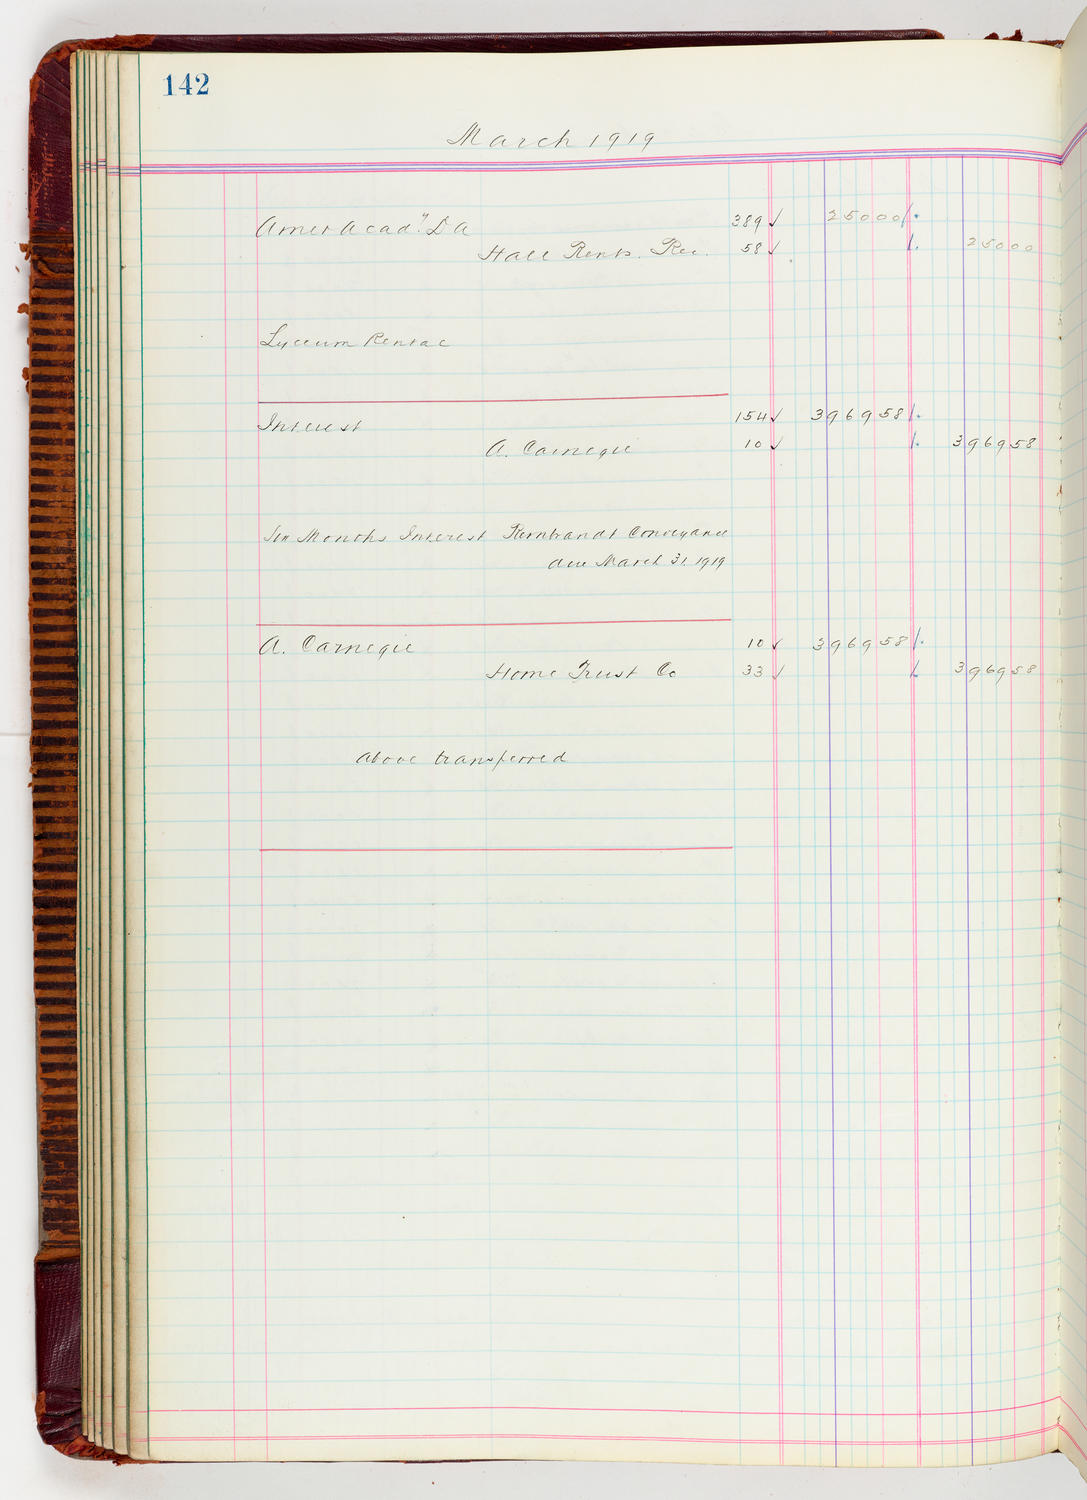 142
March 1919
Amer Acad" D A 389 ✓ 25000 /.
Hall Rents. Rec. 58 ✓ /. 25000
Lyceum Rental
Interest 154 ✓ 396958 /.
A. Carnegie 10 ✓ /. 396958
Six Months Interest Rembrandt Conveyance
due March 31, 1919
A. Carnegie 10 ✓ 396958 /.
Home Trust Co 33 ✓ /. 396958
Above transferred